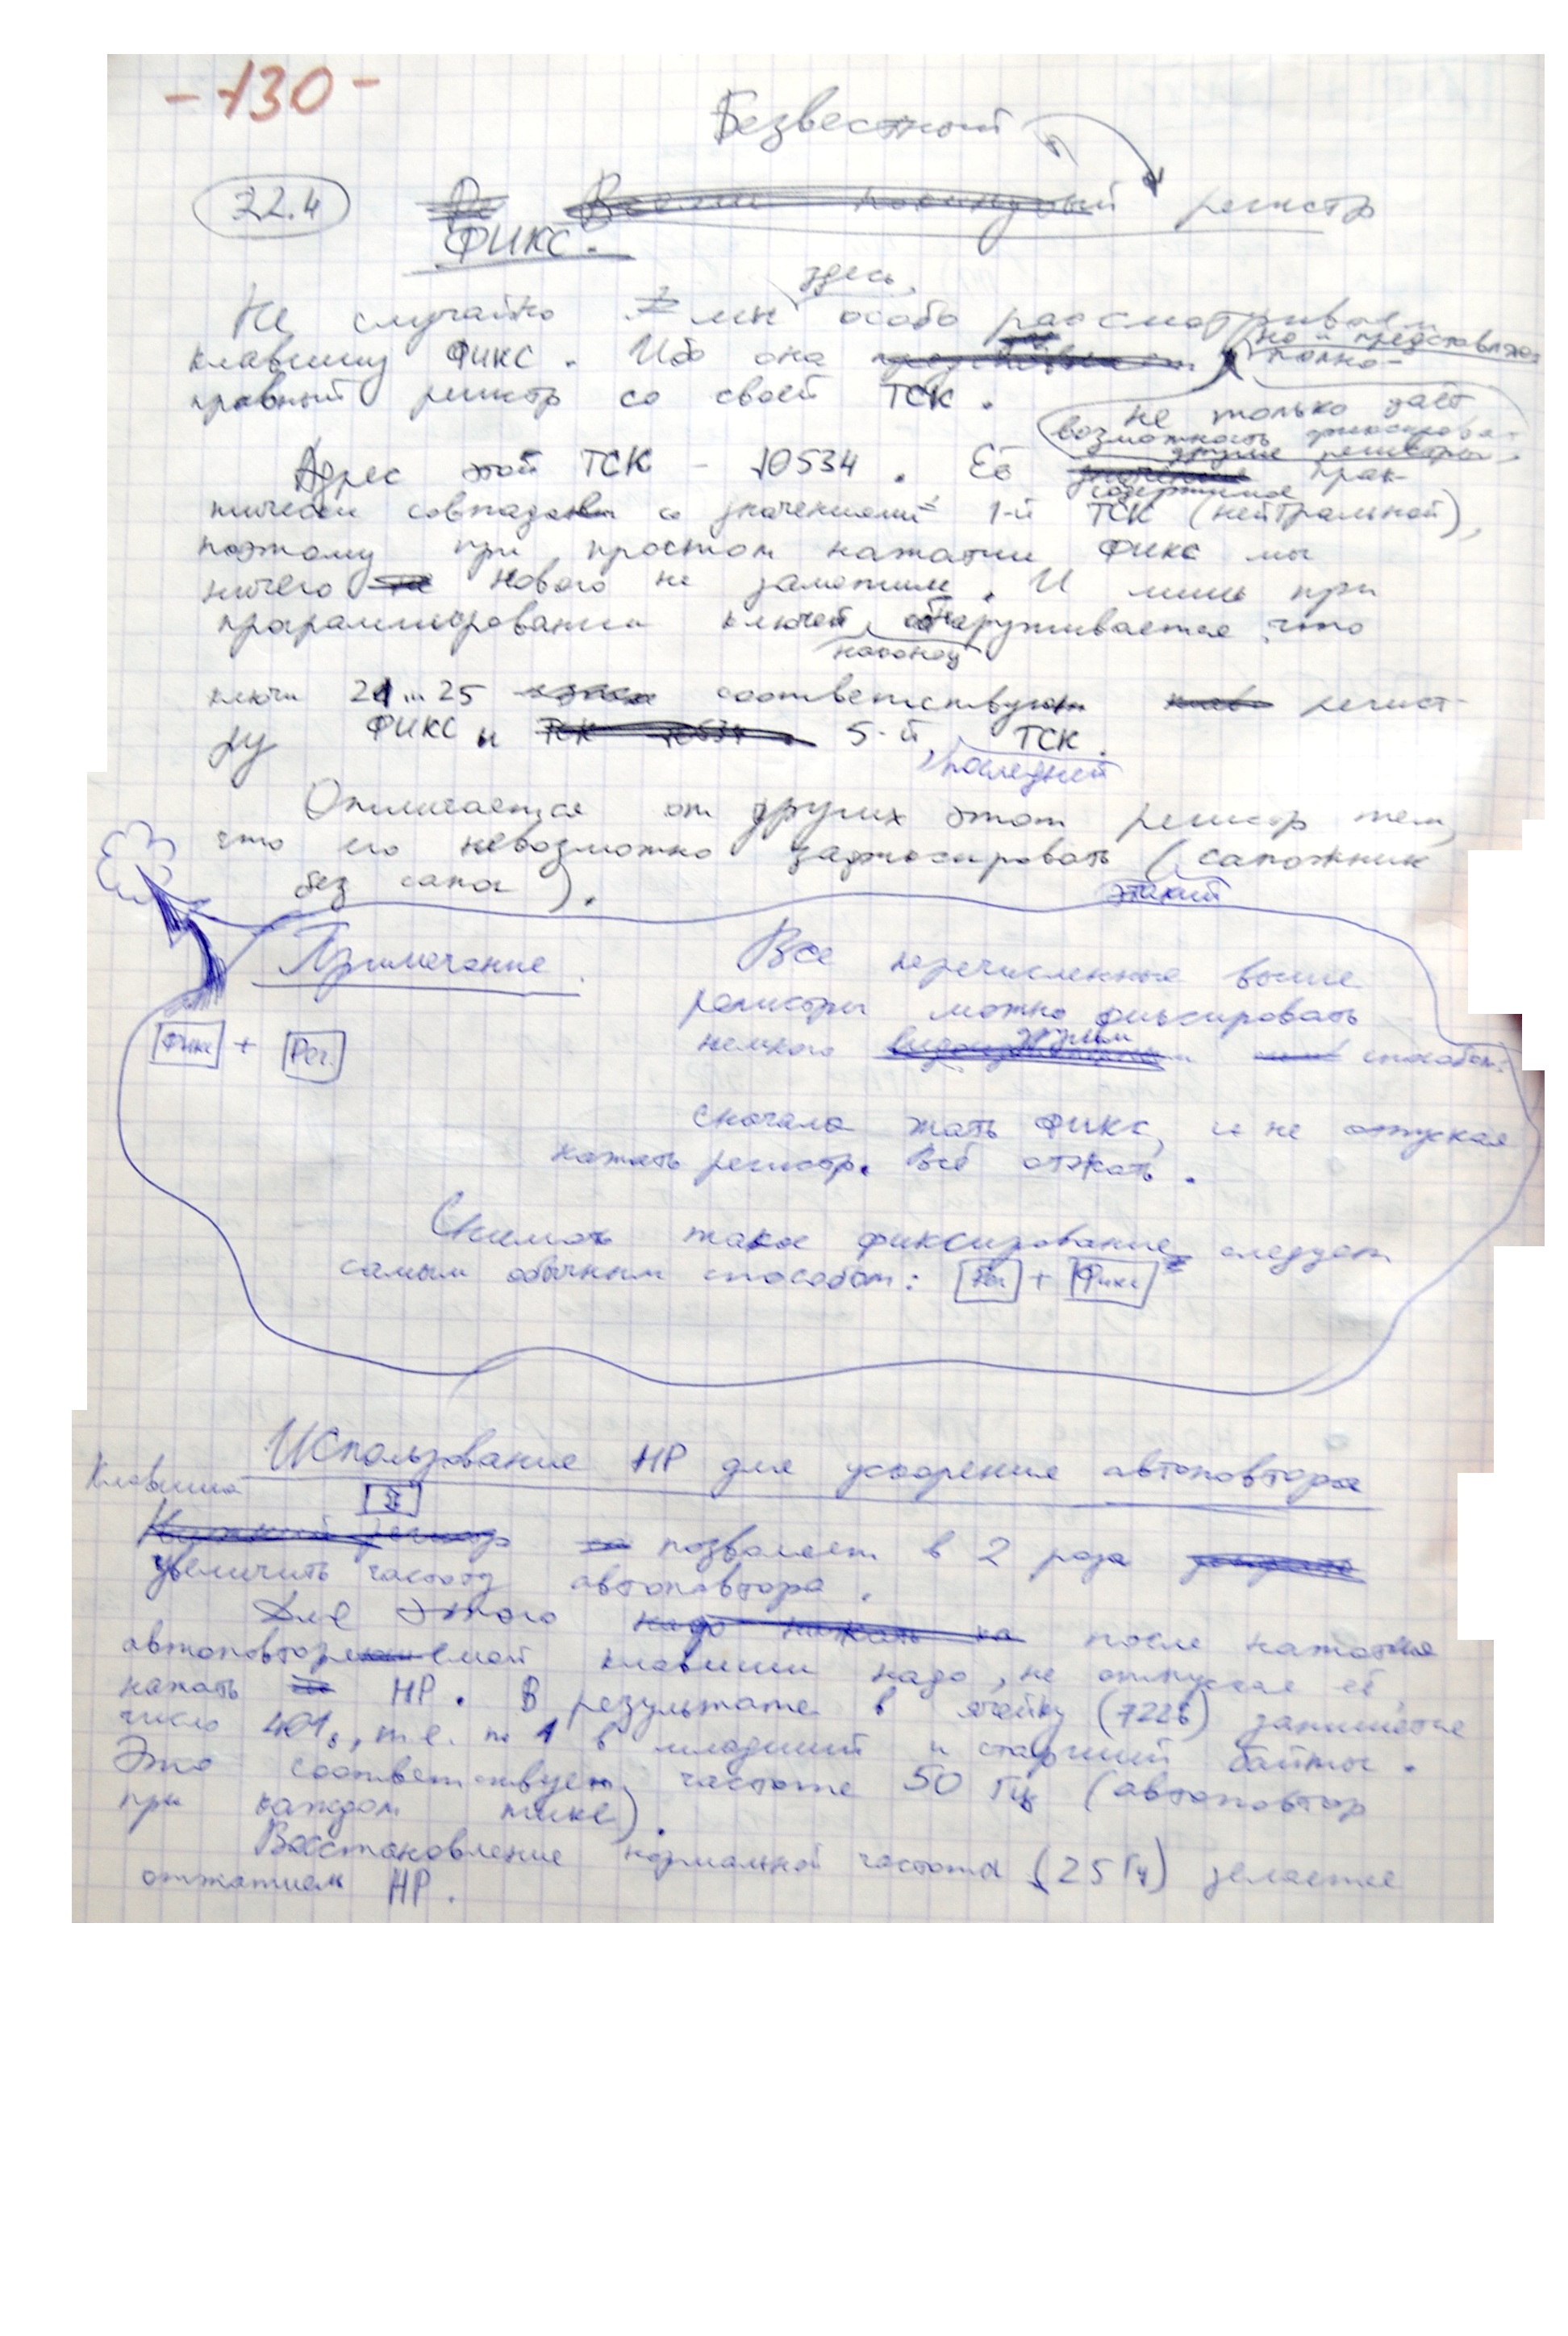 -130-
Безвестный
7.2.4 регистр
ФИКС.
здесь,
Не случайно мы особо рассматриваем
клавишу ФИКС. Ибо она не только даёт
возможность фиксировать
другие регистры,
но и представляет полно-
правный регистр со своей ТСК.
Адрес этой ТСК - 10534. Её содержимое прак-
тически совпадает со значениями 1-й ТСК (нейтральной),
поэтому при простом нажатии ФИКС мы
ничего нового не заметим. И лишь при
программировании ключей, обнаруживается, что
наконец
ключи 21...25 соответствуют регист-
ру ФИКС и 5-й, ТСК.
последней
Отличается от других этот регистр тем,
что его невозможно зафиксировать (сапожник
этакий
без сапог).
Примечание. Все перечисленные выше
регистры можно фиксировать
Фикс + Рег. немного другим способом:
сначала жать ФИКС, и не отпуская
нажать регистр. Всё отжать.
Снимать такое фиксирование следует
самым обычным способом: Рег + Фикс
Использование НР для ускорения автоповтора
Клавиша ⇧
позволяет в 2 раза
увеличить частоту автоповтора.
Для этого после нажатия
автоповторяемой клавиши надо, не отпуская её,
нажать НР. В результате в ячейку (7226) запишется
число 401₈, т.е. по 1 в младший и старший байты.
Это соответствует частоте 50 Гц (автоповтор
при каждом тике).
Восстановление нормальной частоты (25 Гц) делается
отжатием НР.